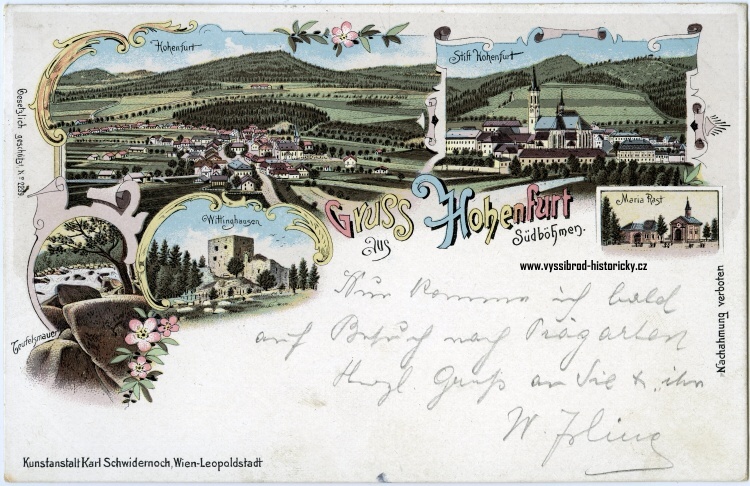 Hohenfurt
Stift Hohenfurt
Gesetzlich geschützt No 2229
Wittinghausen
Gruss
aus
Hohenfurt
Südböhmen.
Maria Rast
www.vyssibrod-historicky.cz
Teufelsmauer
Nur komme ich bald
auf Besuch nach
Herzl. Gruß an Sie &
W.
Nachahmung verboten
Kunstanstalt Karl Schwidernoch, Wien-Leopoldstadt